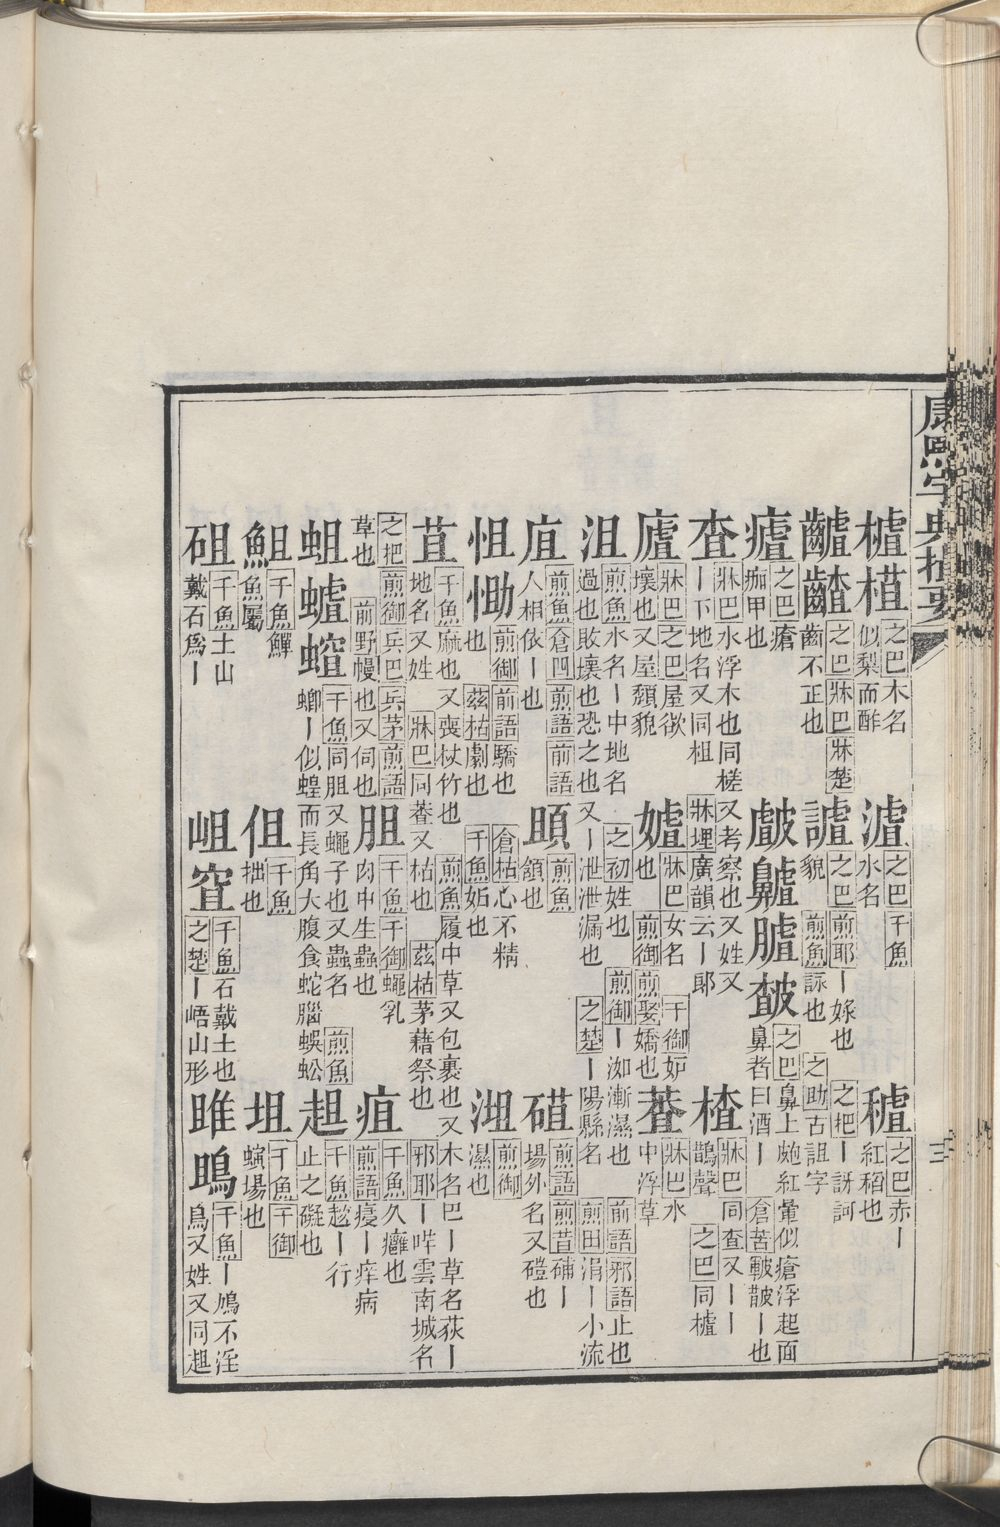 康熙字典撮要
樝 楂 之巴木名似梨而酢 㵀 水名 之巴 千魚 穭 之巴赤丨紅稻也
齇 齇 之巴 牀巴 牀楚 齒不正也 謯 之巴 煎耶丨婇也貌 煎魚 詠也 之助古詛字 之把丨訝訶
㾴 之巴瘡痂甲也 皻 齇 臚 皻 之巴鼻上皰紅暈似瘡浮起面鼻者曰酒丨 倉苦皸皵丨也
查 牀巴水浮木也同槎又考察也又姓又丨下地名又同柤 牀埋廣韻云丨郎 楂 牀巴同查又丨丨鵲聲 之巴同樝
㡿 牀巴 之巴屋欲壞也又屋頹貌 㜘 牀巴女名也 煎御 煎娶嬌也 千御妒 蒫 牀巴水中浮草
沮 煎魚水名丨中地名 之初姓也 煎御丨洳漸濕也 前語 邪語止也過也敗壞也恐之也又丨泄泄漏也 之楚丨陽縣名 煎田涓丨小流
㡹 煎魚 倉凹 煎語 前語人相依丨也 䪶 煎魚頷也 䃊 煎語 煎昔䃚丨塲外名又磑也
怚 㦁 煎御 前語驕也 倉枯心不精也 茲枯劇也 千魚妬也 㵵 煎御濕也
苴 千魚麻也又喪杖竹也 煎魚履中草又包裹也又木名巴丨草名荻丨地名又姓 牀巴同蒫又枯也 茲枯茅藉祭也 邪耶丨哶雲南城名
之把 煎御 兵巴 兵茅 煎語草也 前野幔也又伺也 胆 千魚 千御蠅乳肉中生蟲也 疽 千魚久癰也 煎語痿丨痒病
蛆 蠦 螲 千魚同胆又蠅子也又蟲名 煎魚蝍丨似蝗而長角大腹食蛇腦蜈蚣 趄 千魚趑丨行止之礙也
䱉 千魚鱓魚屬 伹 千魚拙也 坥 千魚 千御螾場也
砠 千魚土山戴石爲丨 岨 㝒 千魚石戴土也 之楚丨峿山形 雎 鴡 千魚丨鳩不淫鳥又姓又同趄
三